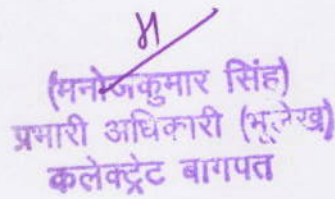 (मनोजकुमार सिंह)
प्रभारी अधिकारी (भूलेख)
कलेक्ट्रेट बागपत